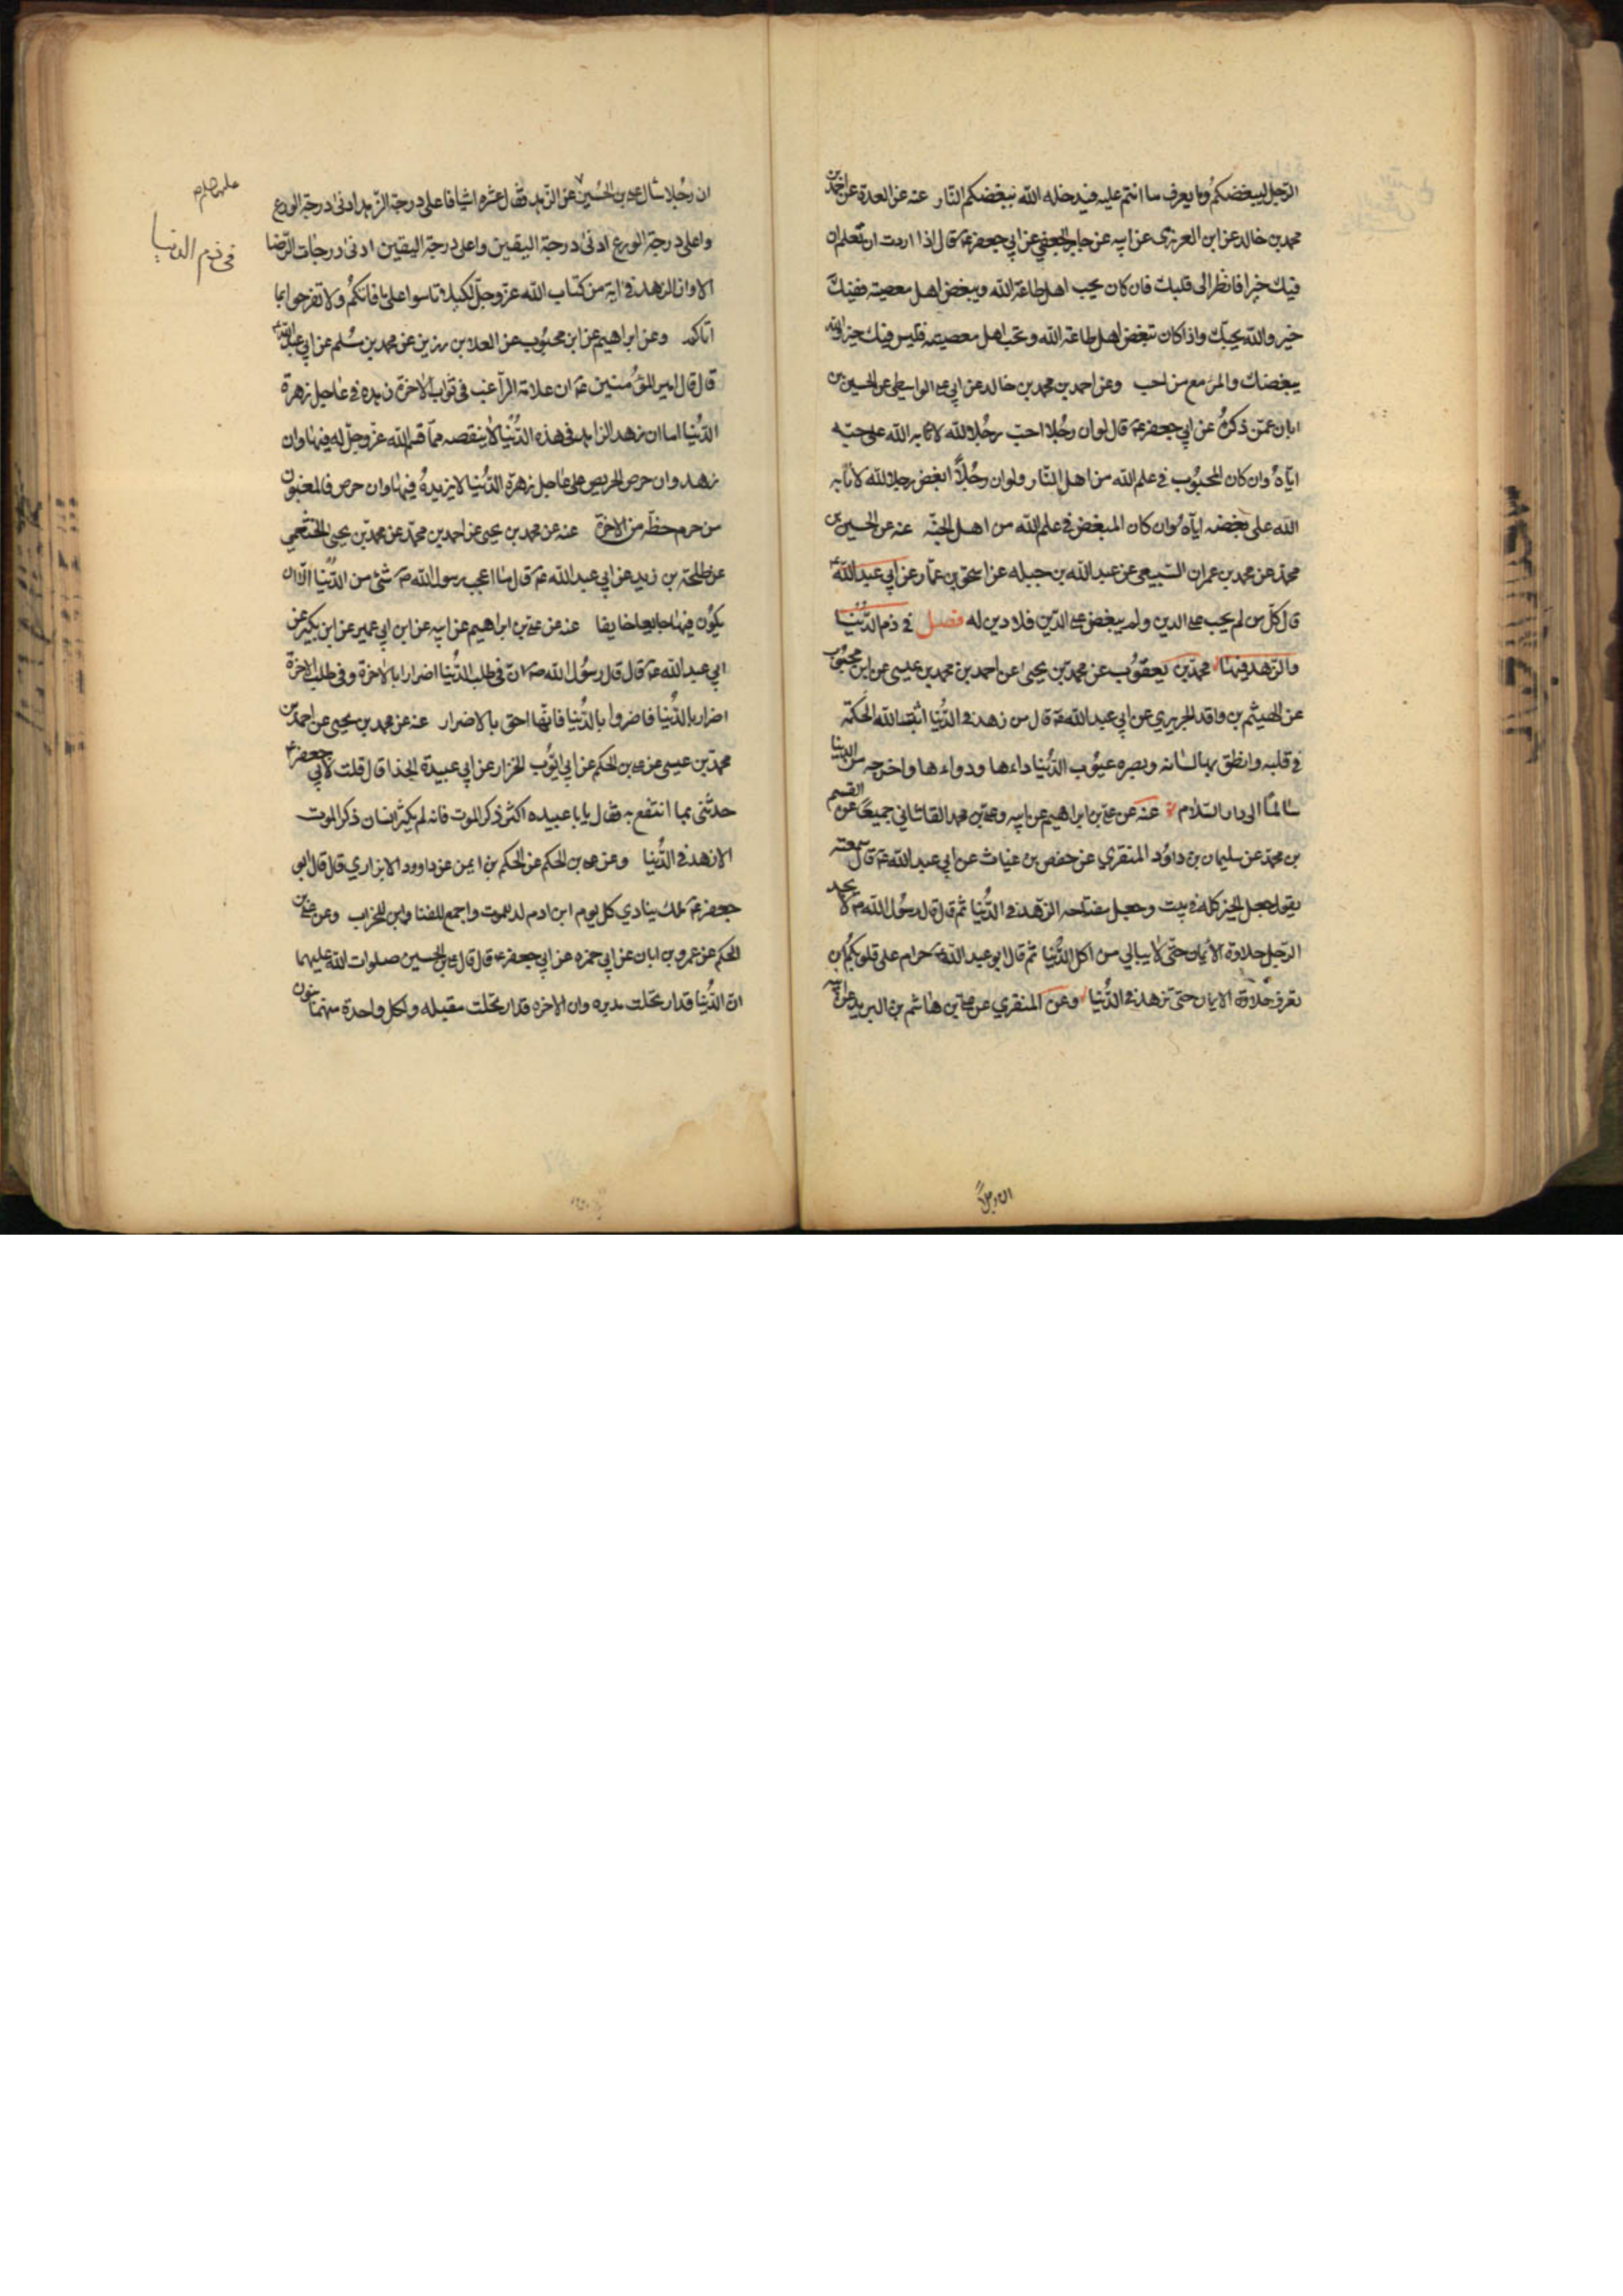 الرّجل ليبغضكم وما يعرف ما انتم عليه فيدخله الله ببغضكم النّار عنه عن العدة عن احمد بن
محمد بن خالد عن ابن العرزمى عن ابيه عن جابر الجعفي عن ابي جعفر ع قال اذا اردت ان تعلم ان
فيك خيرا فانظر الى قلبك فان كان يحب اهل طاعة الله ويبغض اهل معصيته ففيك
خير والله يحبّك واذا كان تبغض اهل طاعة الله وتحب اهل معصيته فليس فيك خير والله
يبغضك والمرء مع من احب وعن احمد بن محمد بن خالد عن ابي علي الواسطي عن الحسين بن
ابان عمّن ذكره عن ابي جعفر ع قال لو ان رجُلا احبّ رجُلا لله لاثابه الله على حبّه
ايّاه وان كان المحبُوب في علم الله من اهل النّار ولو ان رجُلاً ابغض رجلا لله لاثابه
الله على بغضه ايّاه وان كان المبغض في علم الله من اهل الجنّه عنه عن الحسين بن
محمّد عن محمد بن عمران السّبيعي عن عبد الله بن جبله عن اسحق بن عمّار عن ابي عبد الله ع
قال كلّ من لم يحب على الدين ولم يبغض على الدّين فلا دين له فصل في ذم الدُّنيا
والزّهد فيها محمّد بن يعقُوب عن محمّد بن يحيى عن احمد بن محمد بن عيسى عن ابن محبُوب
عن الهيثم بن واقد الجريري عن ابي عبد الله ع قال من زهد في الدُّنيا اثبت الله الحكمة
في قلبه وانطق بها لسانه وبصره عيُوب الدُّنيا داءها ودواءها واخرجه من الدنيا
سالمًا الى دار السّلام عنه عن علي بن ابراهيم عن ابيه وعلي بن محمد القاشاني جميعًا عن القسم
بن محمّد عن سليمان بن داوُد المنقري عن حفص بن غياث عن ابي عبد الله ع قال سمعته
يقول جعل الخير كله في بيت وجعل مفتاحه الزّهد في الدُّنيا ثم قال قال رسُول الله ص لا يجد
الرّجل حلاوة الأيمان حتّى لا يبالي من اكل الدُّنيا ثم قال ابو عبد الله ع حرام على قلوبكُم ان
تعرف حلاوة الايمان حتى تزهد في الدُّنيا وعن المنقري عن علي بن هاشم بن البريد عن ابيه
ان رجُلا
ان رجُلا سال علي بن الحُسين ع عن الزّهد فقال عشره اشيا فاعلى درجة الزّهد ادنى درجة الورع
واعلى درجة الورع ادنى درجة اليقين واعلى درجة اليقين ادنى درجات الرّضا
الا وان الزهد في اية من كتاب الله عزّ وجلّ لكيلا تاسوا على ما فاتكُم ولا تفرحوا بما
اتاكم وعن ابراهيم عن ابن محبُوب عن العلا بن رزين عن محمد بن مُسلم عن ابي عبد الله ع
قال قال امير المؤُمنين ع ان علامة الرّاغب في ثواب الاخرة زهده في عاجل زهرة
الدُّنيا اما ان زهد الزاهد في هذه الدُّنيا لا ينقصه ممّا قسم الله عزّ وجلّ له فيها وان
زهد وان حرص الحريص على عاجل زهرة الدُّنيا لا يزيدهُ فيها وان حرص فالمغبون
من حرم حظّه من الاخرة عنه عن محمد بن يحيى عن احمد بن محمّد عن محمّد بن يحيى الخثعمي
عن طلحة بن زيد عن ابي عبد الله ع قال ما اعجب رسول الله ص شئ من الدُّنيا الّا ان
يكوُن فيها جايعا خايفا عنه عن علي بن ابراهيم عن ابيه عن ابن ابي عمير عن ابن بكير عن
ابي عبد الله ع قال قال رسُول الله ص انّ في طلب الدُّنيا اضرارا بالاخرة وفي طلب الاخرة
اضرارا بالدُّنيا فاضروا بالدُّنيا فانّها احق بالاضرار عنه عن محمد بن يحيى عن احمد بن
محمّد بن عيسى عن علي بن الحكم عن ابي ايّوُب الخزاز عن ابي عبيدة الحذا قال قلت لابي جعفر ع
حدثّنى بما انتفع به فقال يا با عبيده اكثر ذكر الموت فانه لم يكثر انسان ذكر الموت
الا زهد في الدُّنيا وعن علي بن الحكم عن الحكم بن ايمن عن داوود الابزاري قال قال ابو
جعفر ع ملك ينادي كل يوم ابن ادم لد للموت واجمع للفنا وابن للخراب وعن علي بن
الحكم عن عمرو بن ابان عن ابي حمزه عن ابي جعفر ع قال قال علي بن الحسين صلوات الله عليهما
انّ الدُّنيا قد ارتحلت مدبره وان الاخره قد ارتحلت مقبله ولكل واحدة منهما بنون
فى ذم الدنيا